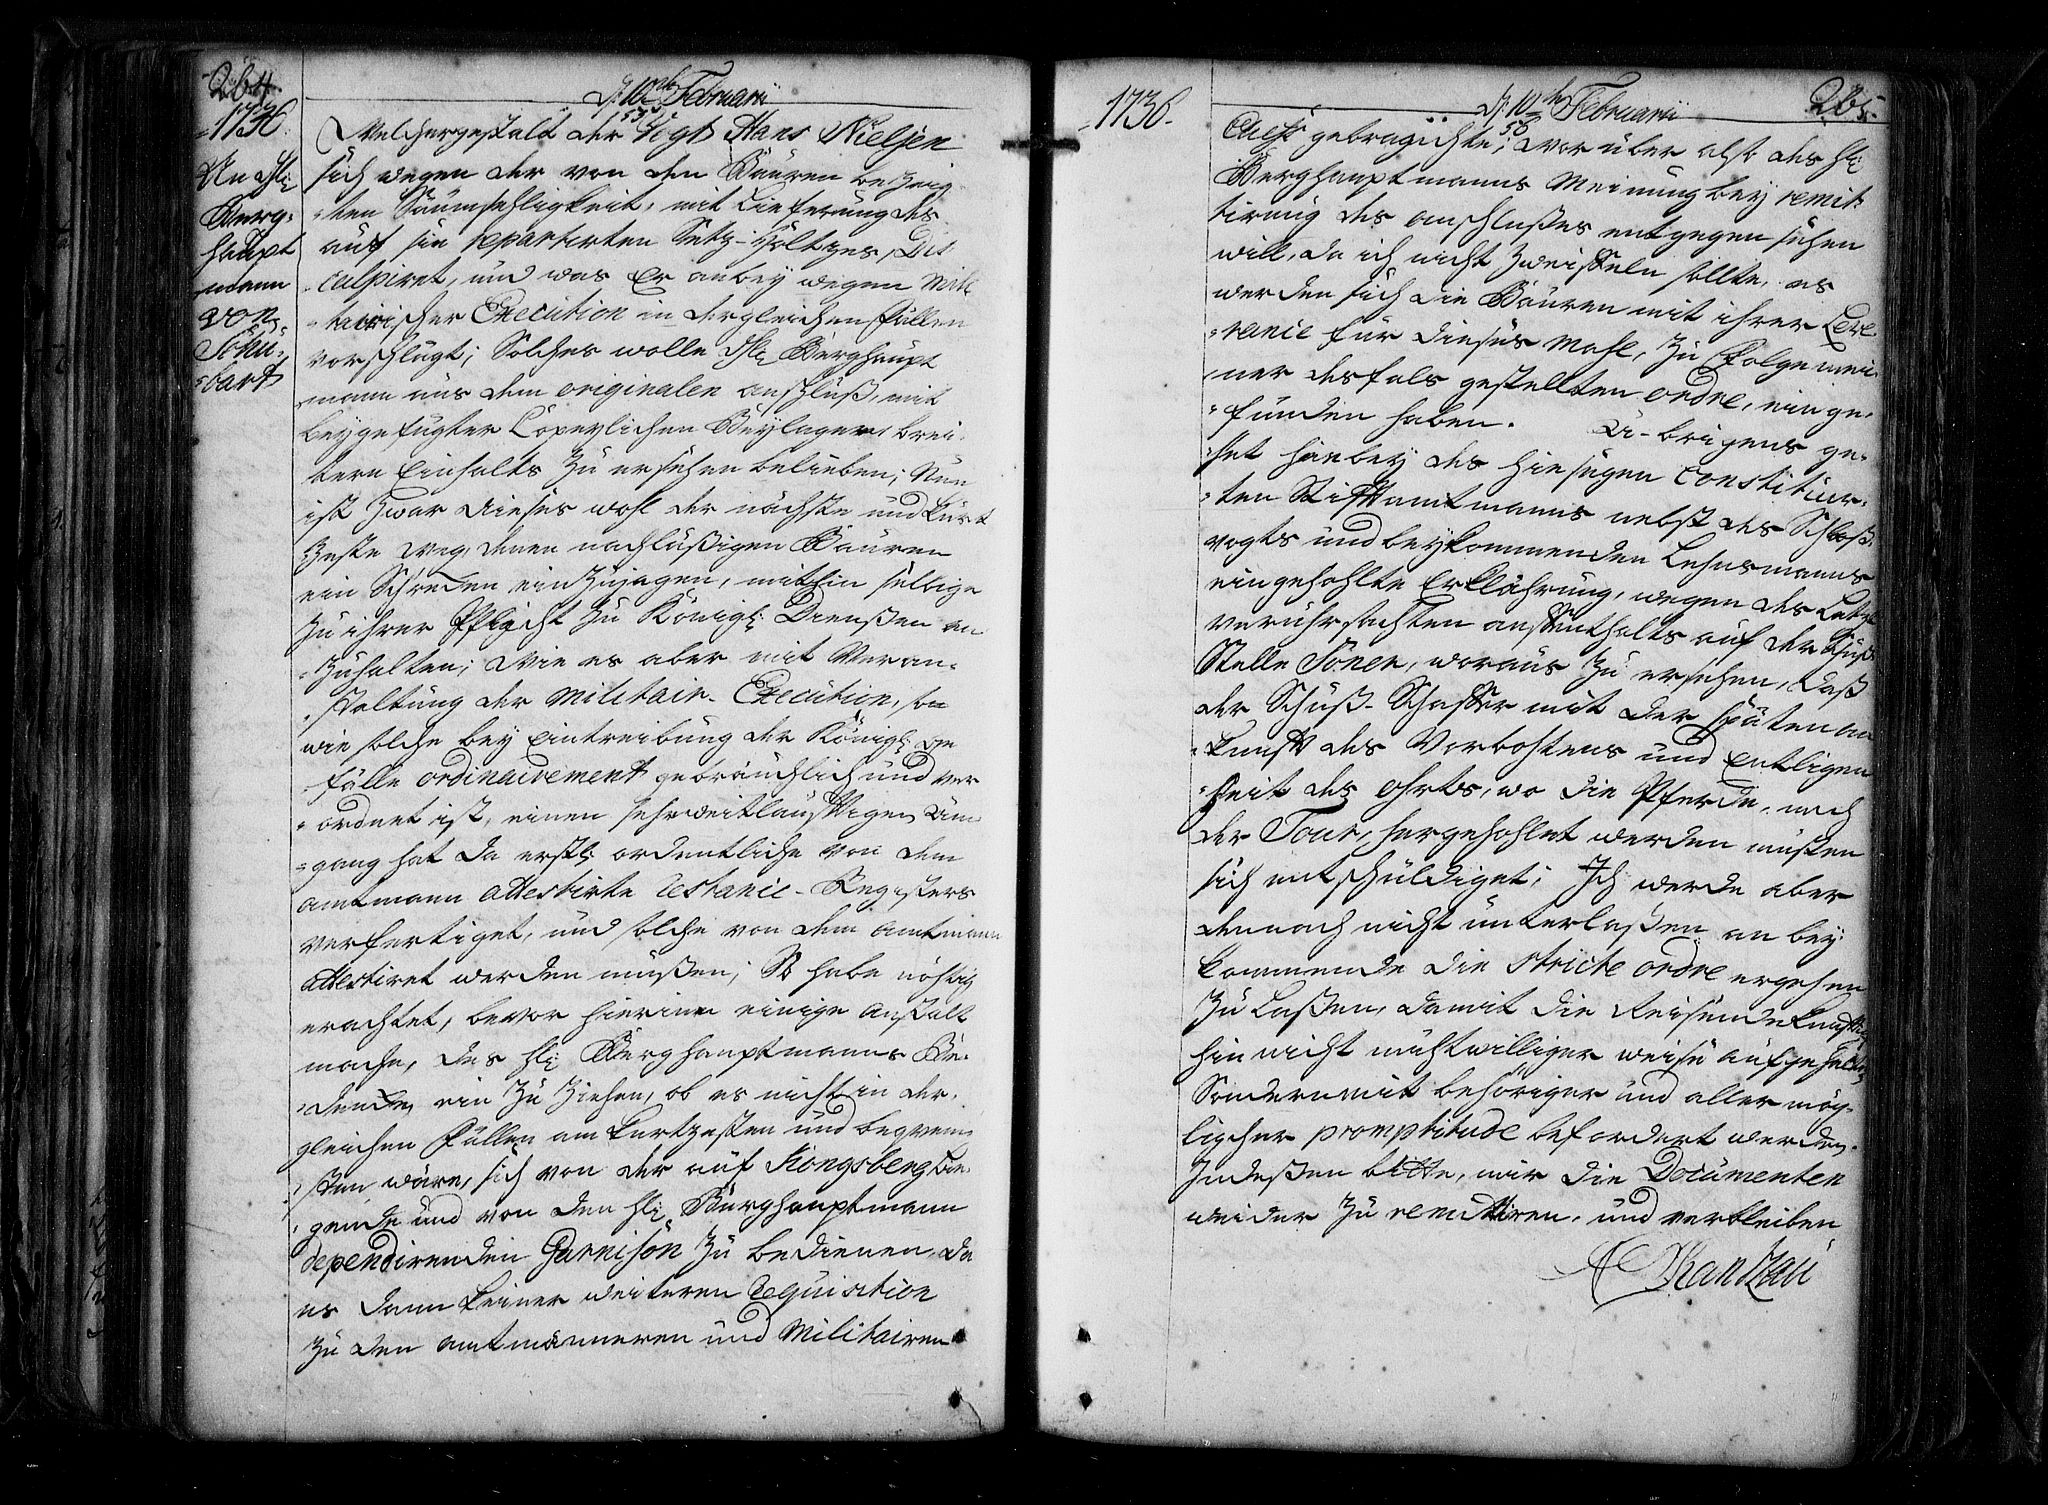 264.
d: 10de Februarii
1736.
An H:
Berg-
haupt
mann
von
Schu-
bart
535
Welchergestalt der Vogt Hans Nielsen
sich wegen der von den Bauren bezeig-
ten Säumsehligkeit, mit Lieferung des
auf sie repartirten Setz-Holtzes, Dis-
culpiret, und was Er anbey wegen Mili-
tairischer Execution in dergleichen Fällen
vorschlägt; Solches wolle H: Berghaupt
mann aus dem originalen anschluß, mit
beygefügter Copeylichen Beylagen, brei-
tern Einhalts zu ersehen belieben; Nun
ist zwar dieses wohl der nächste und kürt
zeste Weg, denen nachläßigen Bauren
ein Schrecken einzujagen, mithin selbige
zu ihrer Pflicht zu Königl: Diensten an
zuhalten; Wie es aber mit Veran-
staltung der Militair-Execution, so
wie solche bey Eintreibung der Königl: Ge
fälle ordinairement gebräuchlich und ver
ordnet ist, einen sehr weitläufftigen Um-
gang hat, da erstl: ordentliche von dem
amtmann attestirte Restance-Registers
verfertiget, und solche von dem amtmann
attestiret werden müßen; So habe nöhtig
erachtet, bevor hierinn einige Anstalt
mache, des H: Berghauptmanns Be-
dencken ein zu ziehen, ob es nicht in der-
gleichen Fällen am kurtzesten und beqvem-
sten wäre, sich von der auf Kongsberg lie-
gende und von den H: Berghauptmann
dependirenden Garnison zu bedienen, da
es dann keiner weiteren Requisition
zu den amtmänneren und Militairen
1736.
d: 10de Februarii
265.
536
Chefs gebrauchte; Worüber also des H:
Berghauptmanns Meinung bey remit-
tirung des anschlußes entgegen sehen
will, da ich nicht zweiffeln sollte, es
werden sich die Bauren mit ihrer Leve-
rance für dieses mahl, zu Folge mei-
ner desfals gestellten ordre, einge-
funden haben. Übrigens ge-
het hierbey des hiesigen Constituir-
ten Stifftamtmanns nebst des Schloß-
vogts und beykommenden Lehnsmanns
eingehohlte Erklährung, wegen des Letzt
veruhrsachten auffenthalts auf der Schuß-
Stelle Jonen, woraus zu ersehen, daß
der Schuß-Schaffer mit der späten an
kunfft des Vorbohtens und Entligen
heit des ohrts, wo die Pferde, nach
der Tour, hergehohlet werden müßen
sich entschuldiget; Ich werde aber
dennoch nicht unterlaßen an bey-
kommende die stricte ordre ergehen
zu laßen, damit die Reisende künfftig
hin nicht muhtwilliger weise aufgehalten
Sondern mit behöriger und aller mög-
ligher promptitude befordert werden.
Indeßen bitte, mir die Documenten
weider zu remittiren, und verbleiben
C Rantzau